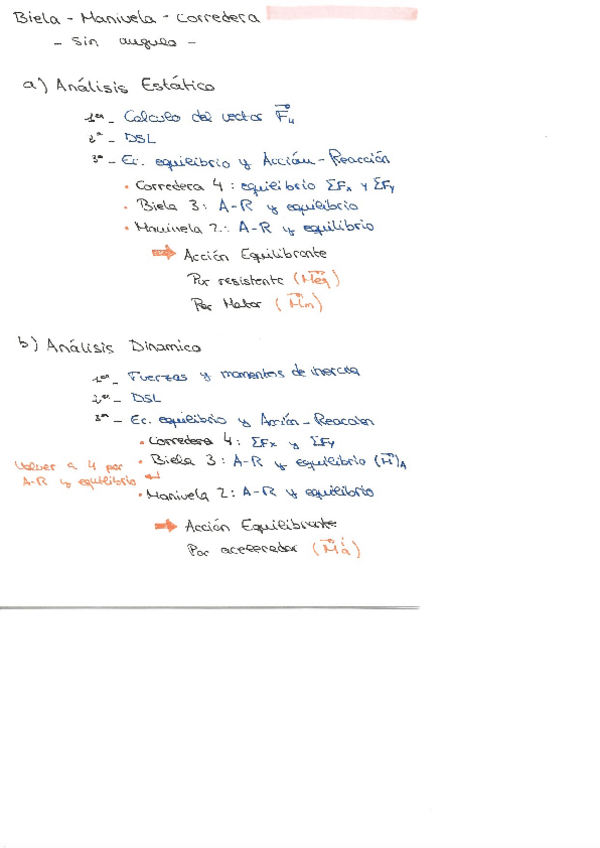 Biela - Manivela - Corredera
- Sin angulo -
a) Análisis Estático
1º - Calculo del vector F₄
2º - DSL
3º - Ec. equilibrio y Acción - Reacción
• Corredera 4 : equilibrio ΣFx y ΣFy
• Biela 3 : A-R y equilibrio
• Manivela 2 : A-R y equilibrio
⇒ Acción Equilibrante
Par resistente (Meq)
Par Motor (Mm)
b) Análisis Dinamico
1º - Fuerzas y momentos de inercia
2º - DSL
3º - Ec. equilibrio y Acción - Reaccion
• Corredera 4 : ΣFx y ΣFy
• Biela 3 : A-R y equilibrio (M)A
Volver a 4 por
A-R y equilibrio ↵
• Manivela 2 : A-R y equilibrio
⇒ Acción Equilibrante
Par acelerador (Má)